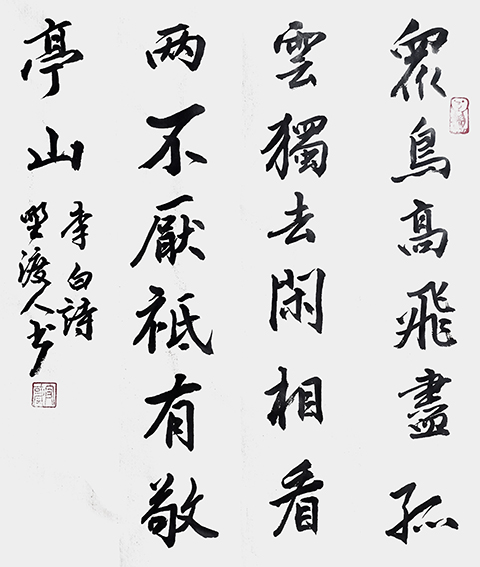 眾鳥高飛盡孤
雲獨去閑相看
两不厭祗有敬
亭山
李白詩
野渡人书